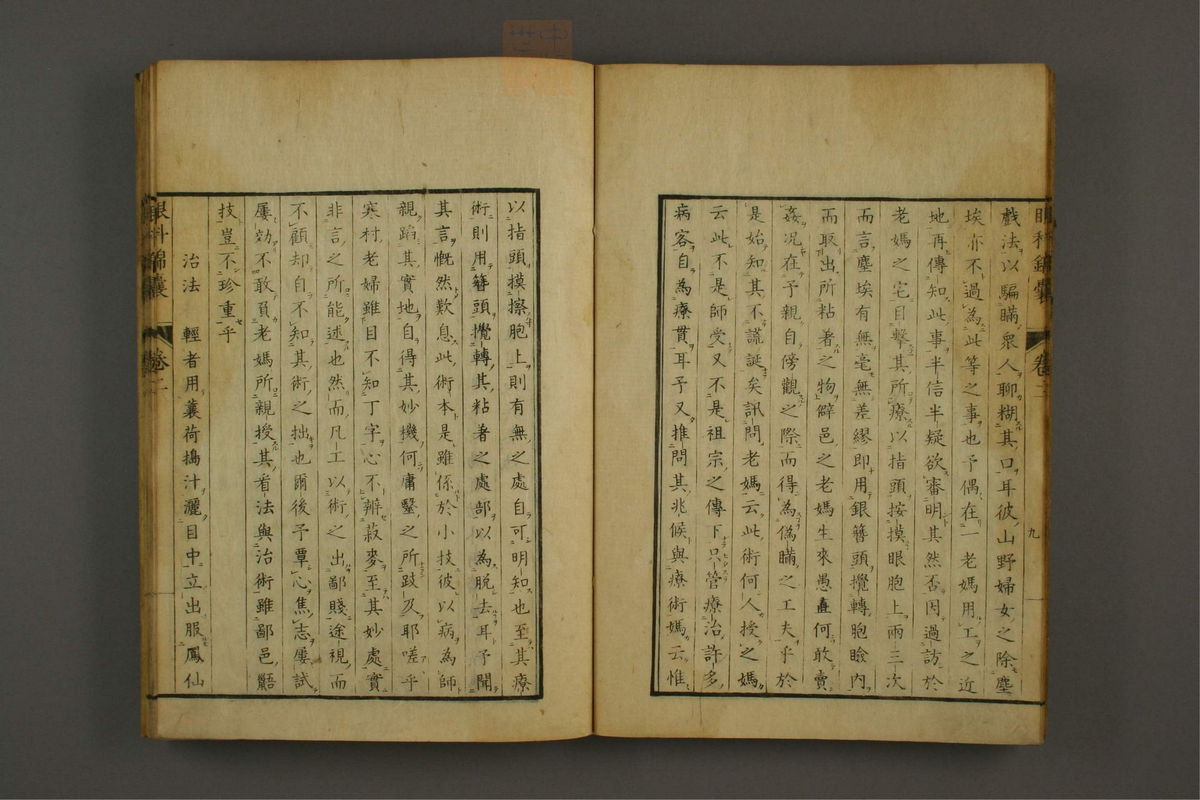 眼科錦囊 卷二
九
戲法以騙瞞衆人聊糊其口耳彼山野婦女之除塵
埃亦不過為此等之事也予偶在一老媽用工之近
地再傳知此事半信半疑欲審明其然否因過訪於
老媽之宅目擊其所療以指頭按摸眼胞上兩三次
而言塵埃有無毫無差繆即用銀簪頭攪轉胞瞼內
而取出所粘著之物僻邑之老媽生來愚直何敢賣
姦況在予親自傍觀之際而得為偽瞞之工夫乎於
是始知其不謊誕矣訊問老媽云此術何人授之媽
云此不是師受又不是祖宗之傳下只管療治許多
病客自為療貫耳予又推問其兆候與療術媽云惟
以指頭摸擦胞上則有無之處自可明知也至其療
術則用簪頭攪轉其粘著之處部以為脫去耳予聞
其言慨然歎息此術本是雖係於小技彼以病為師
親蹈其實地自得其妙機何庸醫之所跂及耶嗟乎
寒村老婦雖目不知丁字心不辨菽麥至其妙處實
非言之所能述也然而凡工以術之出鄙賤途視而
不顧却自不知其術之拙也爾後予覃心焦志屢試
屢効不敢負老媽所親授其看法與治術雖鄙邑
技豈不珍重乎
治法 輕者用蘘荷搗汁灑目中立出服鳳仙
眼科錦囊 卷二